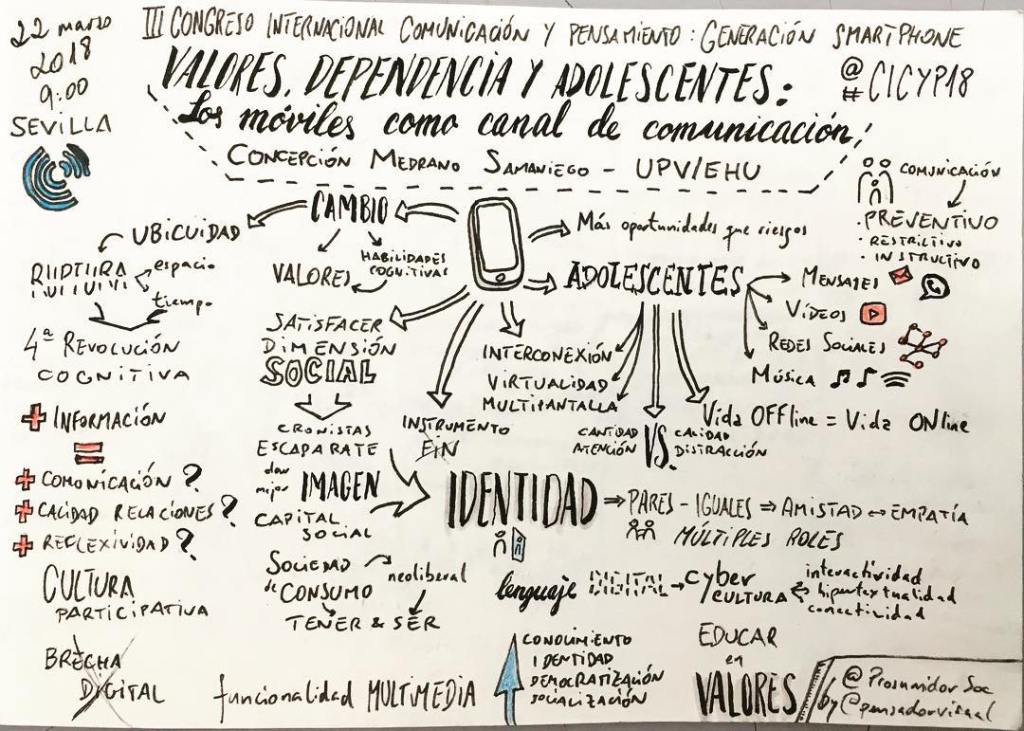 22 marzo
2018
9:00
SEVILLA
III CONGRESO INTERNACIONAL COMUNICACIÓN Y PENSAMIENTO: GENERACIÓN SMARTPHONE
VALORES, DEPENDENCIA Y ADOLESCENTES:
Los móviles como canal de comunicación
@
#CICYP18
CONCEPCIÓN MEDRANO SAMANIEGO - UPV/EHU
COMUNICACIÓN
· PREVENTIVO
· RESTRICTIVO
· INSTRUCTIVO
CAMBIO
UBICUIDAD
RUPTURA
espacio
tiempo
4ª REVOLUCIÓN
COGNITIVA
VALORES
HABILIDADES
COGNITIVAS
Más oportunidades que riesgos
ADOLESCENTES
MENSAJES
VÍDEOS
REDES SOCIALES
MÚSICA
SATISFACER
DIMENSIÓN
SOCIAL
INTERCONEXIÓN
VIRTUALIDAD
MULTIPANTALLA
Vida OFFline = Vida ONline
CANTIDAD
ATENCIÓN
VS.
CALIDAD
DISTRACCIÓN
+ INFORMACIÓN
=
+ COMUNICACIÓN?
+ CALIDAD RELACIONES?
+ REFLEXIVIDAD?
CRONISTAS
ESCAPARATE
dar
mejor
IMAGEN
CAPITAL
SOCIAL
INSTRUMENTO
FIN
IDENTIDAD
PARES - IGUALES ⇒ AMISTAD ↔ EMPATÍA
MÚLTIPLES ROLES
CULTURA
PARTICIPATIVA
SOCIEDAD
de CONSUMO
neoliberal
TENER & SER
lenguaje DIGITAL → cyber
CULTURA
interactividad
hipertextualidad
conectividad
BRECHA
DIGITAL
funcionalidad MULTIMEDIA
CONOCIMIENTO
IDENTIDAD
DEMOCRATIZACIÓN
SOCIALIZACIÓN
EDUCAR
en
VALORES
@ProsumidorSoc
by @pensadorvisual